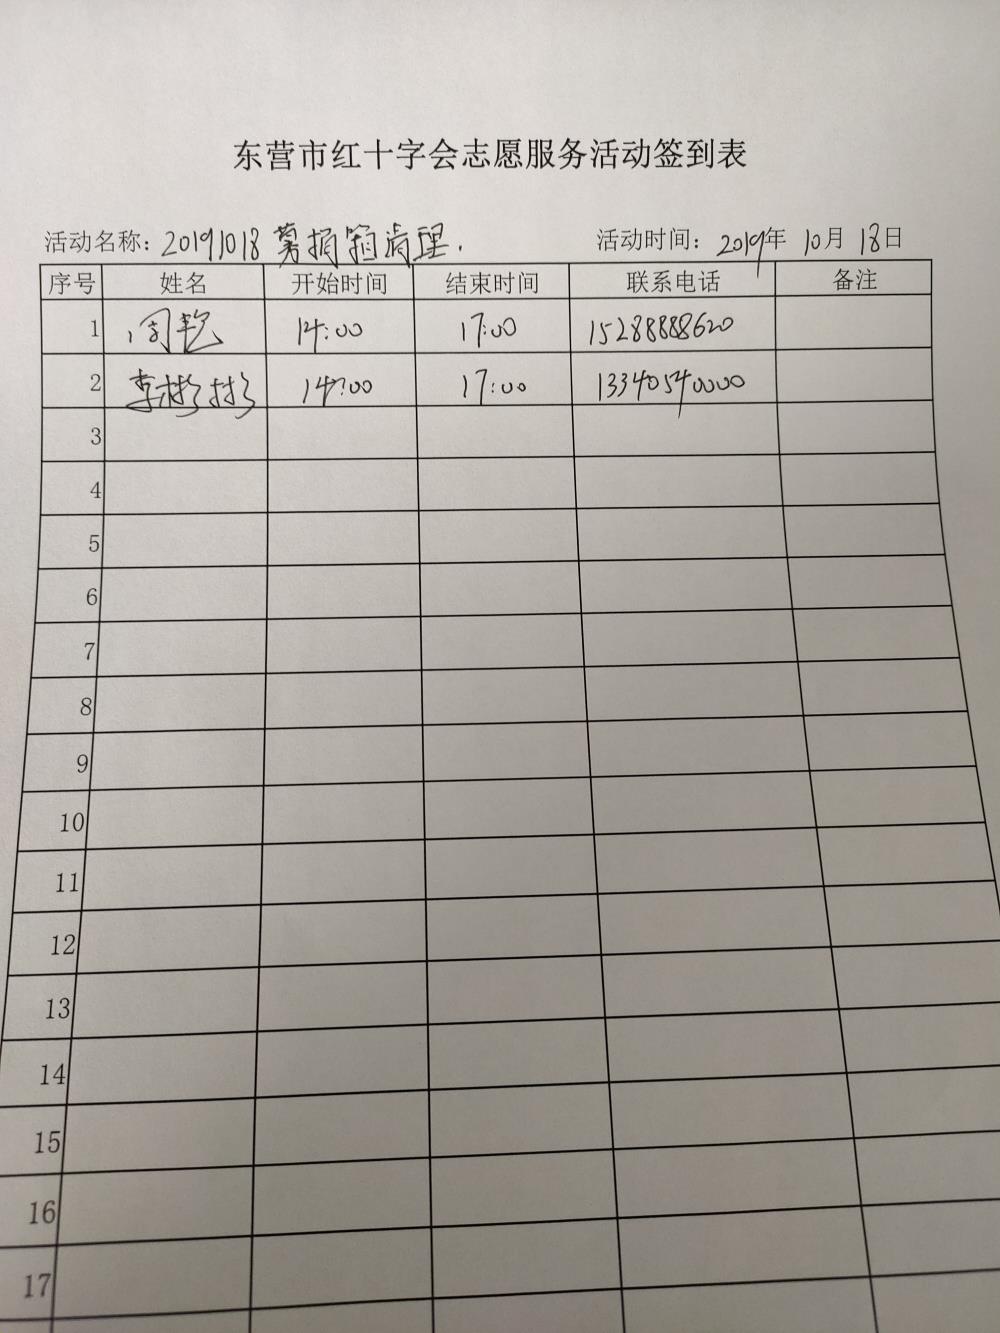 东营市红十字会志愿服务活动签到表
活动名称：20191018 募捐箱清理. 活动时间：2019年 10月 18日
序号 姓名 开始时间 结束时间 联系电话 备注
1 闫艳 14:00 17:00 15288888620
2 李彬彬 14:00 17:00 13340540000
3
4
5
6
7
8
9
10
11
12
13
14
15
16
17